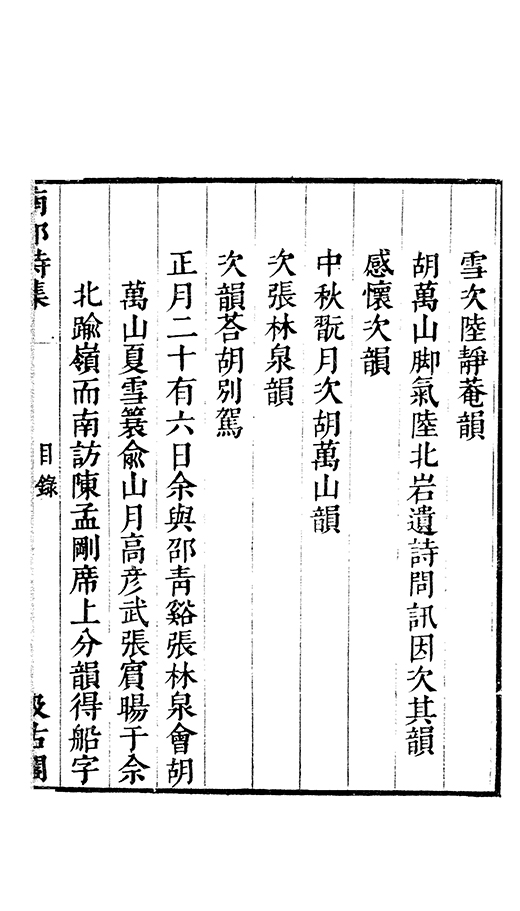 雪次陸靜菴韻
胡萬山脚氣陸北岩遺詩問訊因次其韻
感懷次韻
中秋翫月次胡萬山韻
次張林泉韻
次韻荅胡別駕
正月二十有六日余與邵青谿張林泉會胡
萬山夏雪簑兪山月高彦武張賔暘于佘
北踰嶺而南訪陳孟剛席上分韻得船字
詩集
目錄
汲古閣